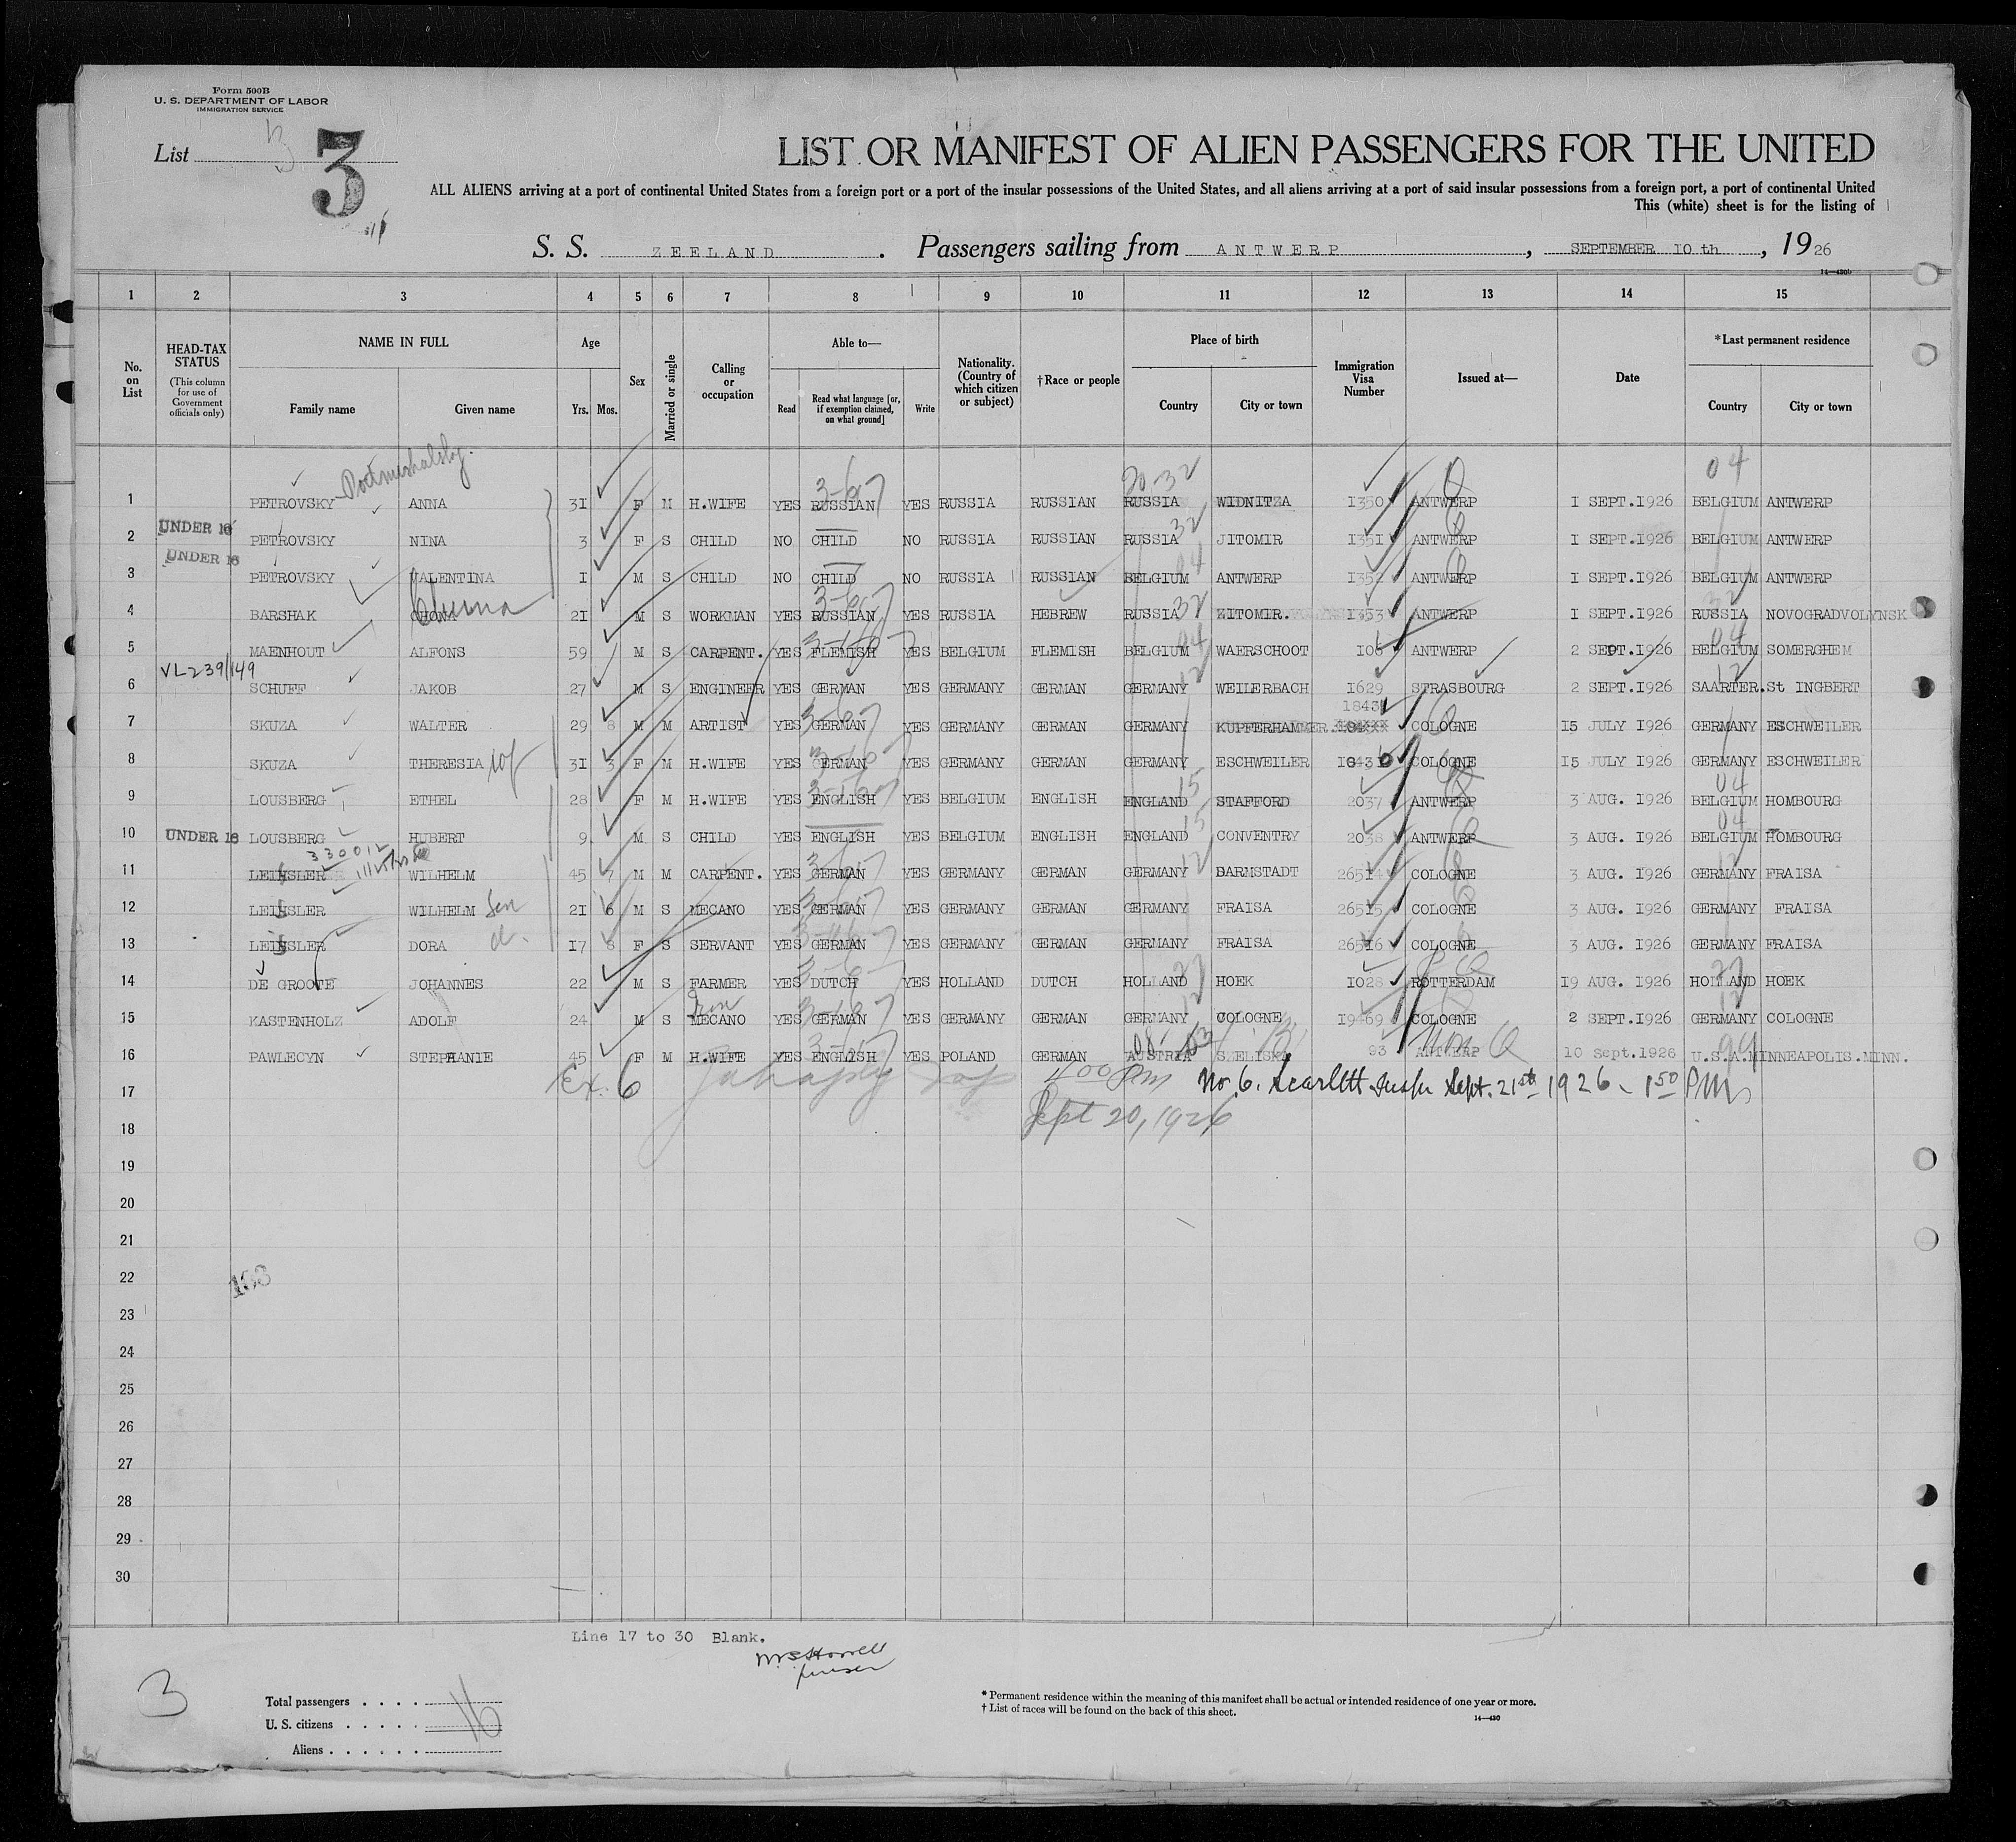 Form 500B
U. S. DEPARTMENT OF LABOR
IMMIGRATION SERVICE
List 3
3
LIST OR MANIFEST OF ALIEN PASSENGERS FOR THE UNITED
ALL ALIENS arriving at a port of continental United States from a foreign port or a port of the insular possessions of the United States, and all aliens arriving at a port of said insular possessions from a foreign port, a port of continental United
This (white) sheet is for the listing of
S. S. ZEELAND. Passengers sailing from ANTWERP, SEPTEMBER 10 th, 1926
14—430b
1 2 3 4 5 6 7 8 9 10 11 12 13 14 15
No. on List
HEAD-TAX STATUS (This column for use of Government officials only)
NAME IN FULL Family name Given name
Age Yrs. Mos.
Sex
Married or single
Calling or occupation
Able to— Read Read what language [or, if exemption claimed, on what ground] Write
Nationality. (Country of which citizen or subject)
†Race or people
Place of birth Country City or town
Immigration Visa Number
Issued at—
Date
*Last permanent residence Country City or town
20-32 04
1 PETROVSKY ANNA 31 F M H.WIFE YES RUSSIAN YES RUSSIA RUSSIAN RUSSIA WIDNITZA 1350 ANTWERP 1 SEPT.1926 BELGIUM ANTWERP
2 UNDER 16 PETROVSKY NINA 3 F S CHILD NO CHILD NO RUSSIA RUSSIAN RUSSIA JITOMIR 1351 ANTWERP 1 SEPT.1926 BELGIUM ANTWERP
3 UNDER 16 PETROVSKY VALENTINA 1 M S CHILD NO CHILD NO RUSSIA RUSSIAN BELGIUM ANTWERP 1352 ANTWERP 1 SEPT.1926 BELGIUM ANTWERP
4 BARSHAK CHONA 21 M S WORKMAN YES RUSSIAN YES RUSSIA HEBREW RUSSIA ZITOMIR. 1353 ANTWERP 1 SEPT.1926 RUSSIA NOVOGRADVOLYNSK
5 MAENHOUT ALFONS 59 M S CARPENT. YES FLEMISH YES BELGIUM FLEMISH BELGIUM WAERSCHOOT 106 ANTWERP 2 SEPT.1926 BELGIUM SOMERGHEM
VL239/149
6 SCHUFF JAKOB 27 M S ENGINEER YES GERMAN YES GERMANY GERMAN GERMANY WEILERBACH 1629 STRASBOURG 2 SEPT.1926 SAARTER.St INGBERT
18431
7 SKUZA WALTER 29 8 M M ARTIST YES GERMAN YES GERMANY GERMAN GERMANY KUPFERHAMMER. COLOGNE 15 JULY 1926 GERMANY ESCHWEILER
8 SKUZA THERESIA wf 31 3 F M H.WIFE YES GERMAN YES GERMANY GERMAN GERMANY ESCHWEILER COLOGNE 15 JULY 1926 GERMANY ESCHWEILER
9 LOUSBERG ETHEL 28 F M H.WIFE YES ENGLISH YES BELGIUM ENGLISH ENGLAND STAFFORD 2037 ANTWERP 3 AUG. 1926 BELGIUM HOMBOURG
10 UNDER 16 LOUSBERG HUBERT 9 M S CHILD YES ENGLISH YES BELGIUM ENGLISH ENGLAND COVENTRY 2038 ANTWERP 3 AUG. 1926 BELGIUM HOMBOURG
330012
11 LEIHSLER WILHELM 45 7 M M CARPENT. YES GERMAN YES GERMANY GERMAN GERMANY DARMSTADT 26514 COLOGNE 3 AUG. 1926 GERMANY FRAISA
12 LEIHSLER WILHELM 21 6 M S MECANO YES GERMAN YES GERMANY GERMAN GERMANY FRAISA 26515 COLOGNE 3 AUG. 1926 GERMANY FRAISA
13 LEIHSLER DORA 17 8 F S SERVANT YES GERMAN YES GERMANY GERMAN GERMANY FRAISA 26516 COLOGNE 3 AUG. 1926 GERMANY FRAISA
14 DE GROOTE JOHANNES 22 M S FARMER YES DUTCH YES HOLLAND DUTCH HOLLAND HOEK 1028 ROTTERDAM 19 AUG. 1926 HOLLAND HOEK
15 KASTENHOLZ ADOLF 24 M S MECANO YES GERMAN YES GERMANY GERMAN GERMANY COLOGNE 19469 COLOGNE 2 SEPT.1926 GERMANY COLOGNE
16 PAWLECYN STEPHANIE 45 F M H.WIFE YES ENGLISH YES POLAND GERMAN AUSTRIA 93 ANTWERP 10 Sept.1926 U.S.A.MINNEAPOLIS.MINN.
17 Ex. 6 400 Pm No. 6. Scarlett Sept. 21st 1926 - 150 PM
18 Sept 20, 1926
19
20
21
22
23
24
25
26
27
28
29
30
Line 17 to 30 Blank.
purser
3
Total passengers . . . . 16
U. S. citizens . . . . .
Aliens . . . . . .
* Permanent residence within the meaning of this manifest shall be actual or intended residence of one year or more.
† List of races will be found on the back of this sheet.
14—430